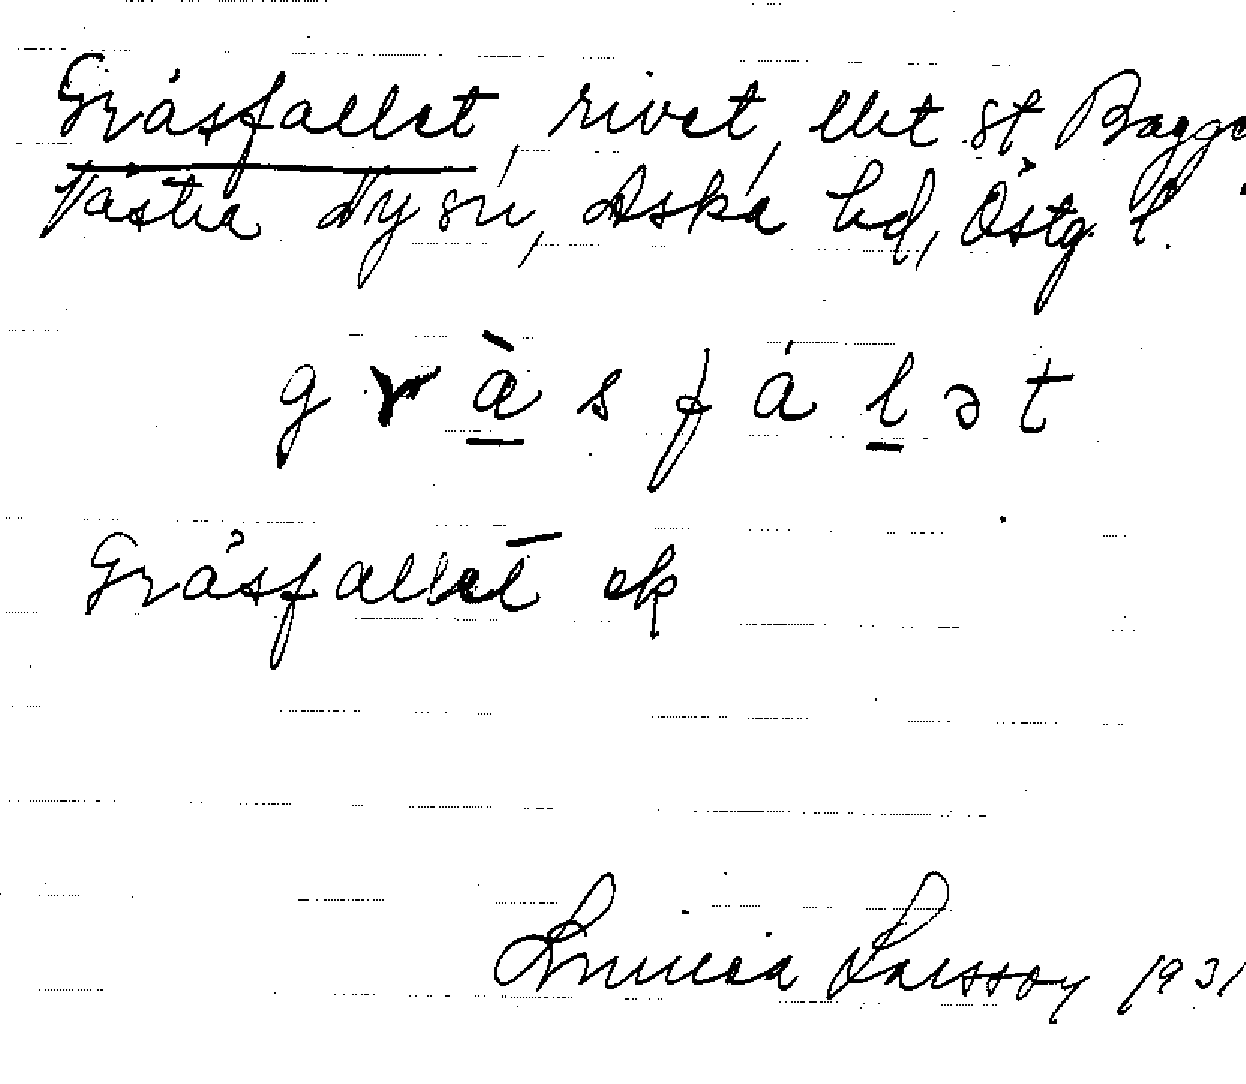 Gråsfallet, rivet, lht St. Bagge
Västra Ny sn, Aska hd, Östg. l.
gràsfálət
Gråsfallet ek
Linnea Larsson 1931